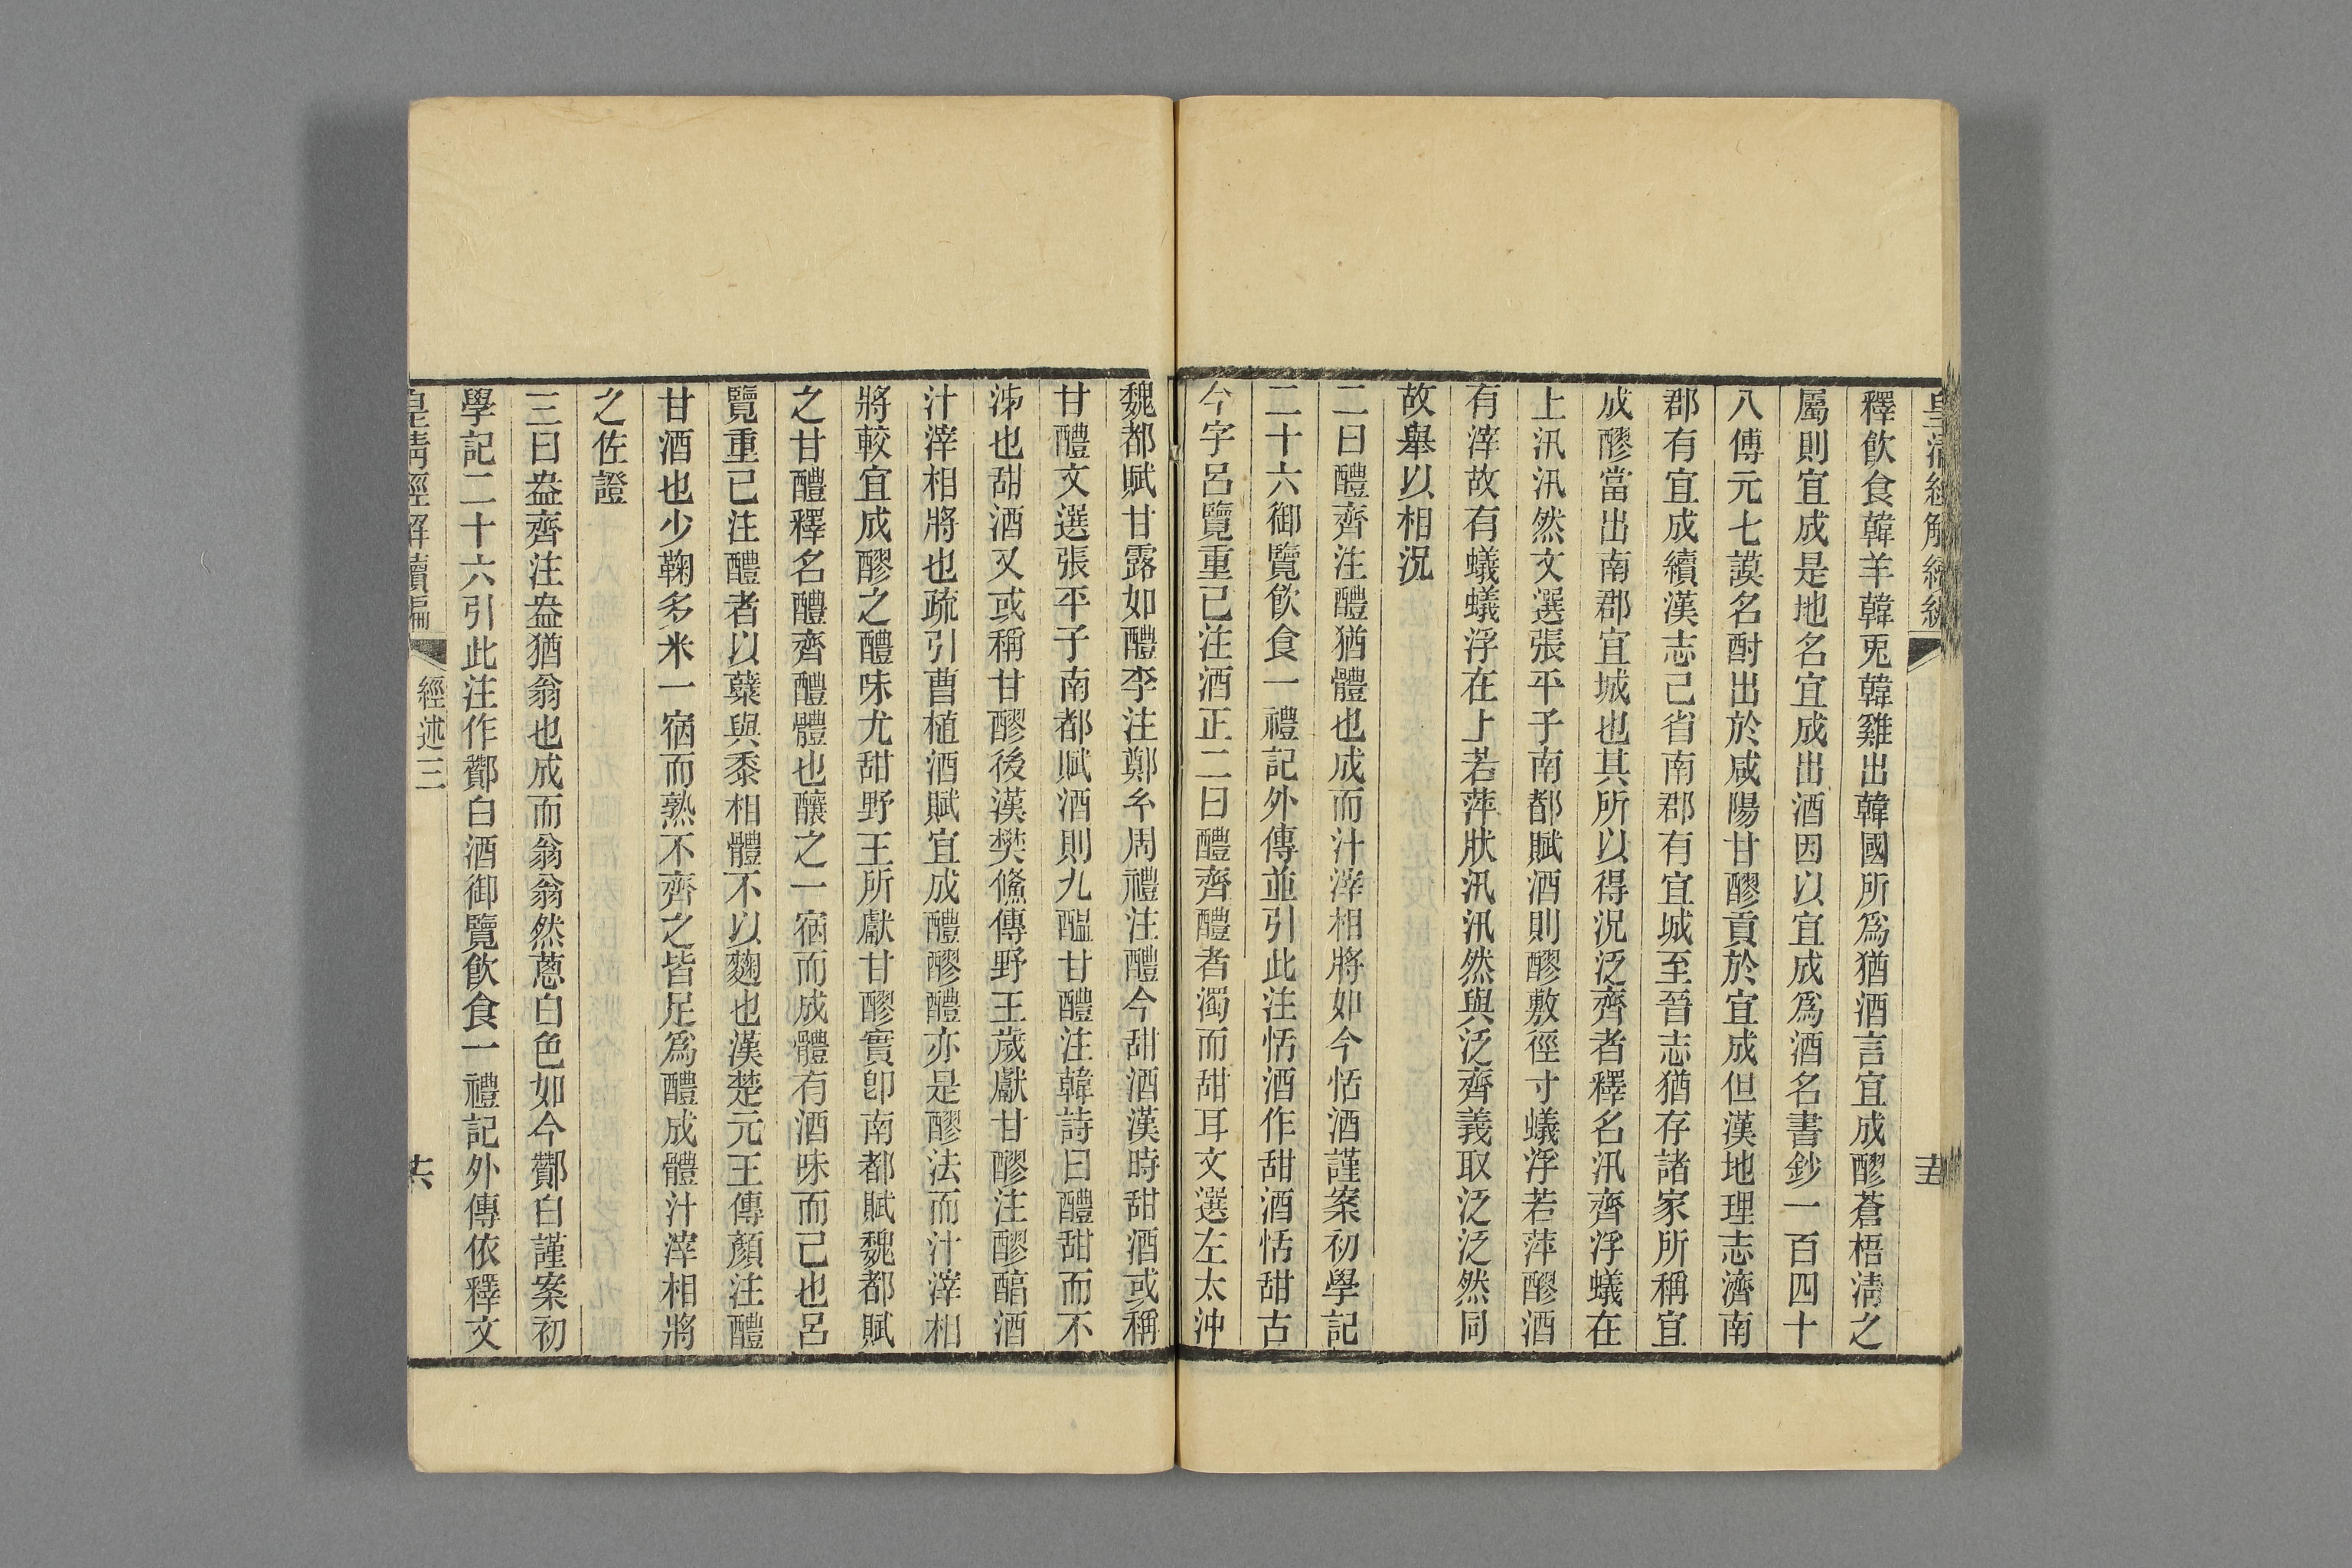 皇清經解續編
釋飲食韓羊韓兎韓雞出韓國所爲猶酒言宜成醪蒼梧淸之
屬則宜成是地名宜成出酒因以宜成爲酒名書鈔一百四十
八傅元七謨名酎出於咸陽甘醪貢於宜成但漢地理志濟南
郡有宜成續漢志已省南郡有宜城至晉志猶存諸家所稱宜
成醪當出南郡宜城也其所以得況泛齊者釋名汎齊浮蟻在
上汎汎然文選張平子南都賦酒則醪敷徑寸蟻浮若萍醪酒
有滓故有蟻蟻浮在上若萍狀汎汎然與泛齊義取泛泛然同
故舉以相況
二曰醴齊注醴猶體也成而汁滓相將如今恬酒謹案初學記
二十六御覽飲食一禮記外傳並引此注恬酒作甜酒恬甜古
今字呂覽重已注酒正二曰醴齊醴者濁而甜耳文選左太沖
魏都賦甘露如醴李注鄭𤣥周禮注醴今甜酒漢時甜酒或稱
甘醴文選張平子南都賦酒則九醞甘醴注韓詩曰醴甜而不
泲也甜酒又或稱甘醪後漢樊儵傳野王歲獻甘醪注醪醕酒
汁滓相將也疏引曹植酒賦宜成醴醪醴亦是醪法而汁滓相
將較宜成醪之醴味尤甜野王所獻甘醪實卽南都賦魏都賦
之甘醴釋名醴齊醴體也釀之一宿而成體有酒味而已也呂
覽重已注醴者以糵與黍相體不以麴也漢楚元王傳顏注醴
甘酒也少鞠多米一宿而熟不齊之皆足爲醴成體汁滓相將
之佐證
三曰盎齊注盎猶翁也成而翁翁然蔥白色如今酇白謹案初
學記二十六引此注作酇白酒御覽飲食一禮記外傳依釋文
皇淸經解續編
經述三